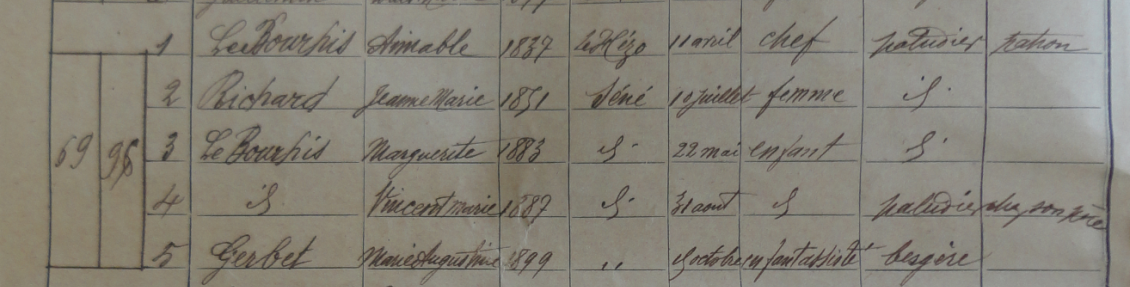 1 Le Bourhis Aimable 1837 le Hézo 11 avril chef paludier patron
2 Richard Jeanne Marie 1851 Séné 10 juillet femme d°
3 Le Bourhis Marguerite 1883 d° 22 mai enfant d°
59 96
4 d° Vincent marie 1887 d° 31 aout d° paludier chez son père
5 Gerbet Marie Augustine 1899 ,, octobre enfant assisté bergère